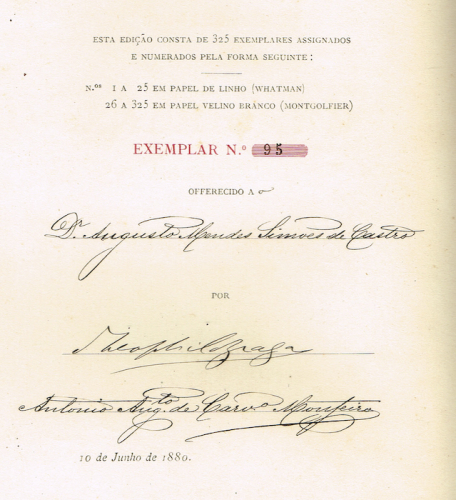 ESTA EDIÇÃO CONSTA DE 325 EXEMPLARES ASSIGNADOS
E NUMERADOS PELA FORMA SEGUINTE:
N.ºs 1 A 25 EM PAPEL DE LINHO (WHATMAN)
26 A 325 EM PAPEL VELINO BRANCO (MONTGOLFIER)
EXEMPLAR N.º 95
OFFERECIDO A o
Dr. Augusto Mendes Simões de Castro
POR
Theophilo Braga
Antonio Aug.to de Carv.o Monteiro
10 de Junho de 1880.